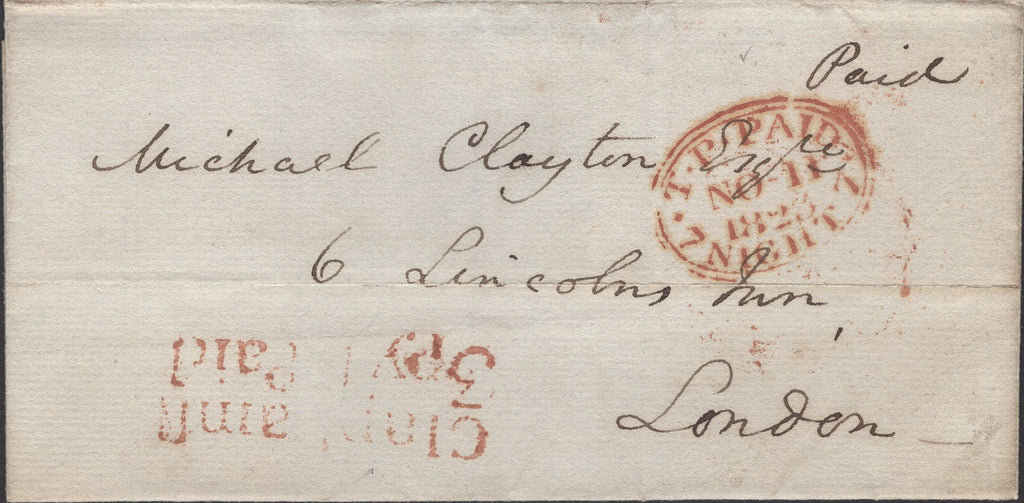 Paid
Michael Clayton Esqre
6 Lincolns Inn
London
T.P PAID
1823
7 NIGHT 7
Clapham
3py P Paid